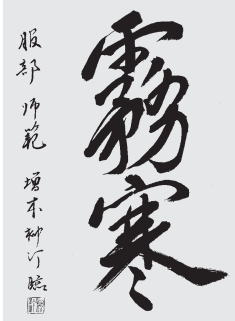 霧寒
服部 师範 増本柳汀臨